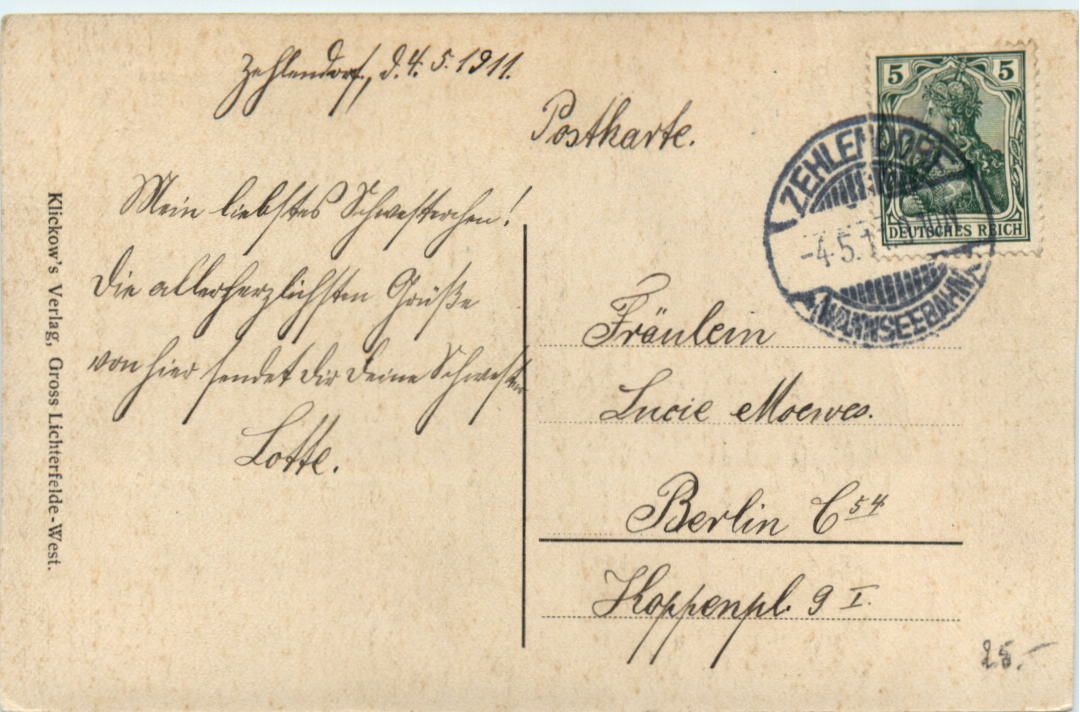 Zehlendorf, d. 4. 5. 1911.
Postkarte.
Mein liebstes Schwesterchen!
Die allerherzlichsten Grüße
von hier sendet Dir Deine Schwester
Lotte.
5 5
DEUTSCHES REICH
ZEHLENDORF
-4.5.11.
(WANNSEEBAHN)
Fräulein
Lucie Moewes.
Berlin C 54
Koppenpl. 9 I.
25.-
Klickow's Verlag, Gross Lichterfelde-West.